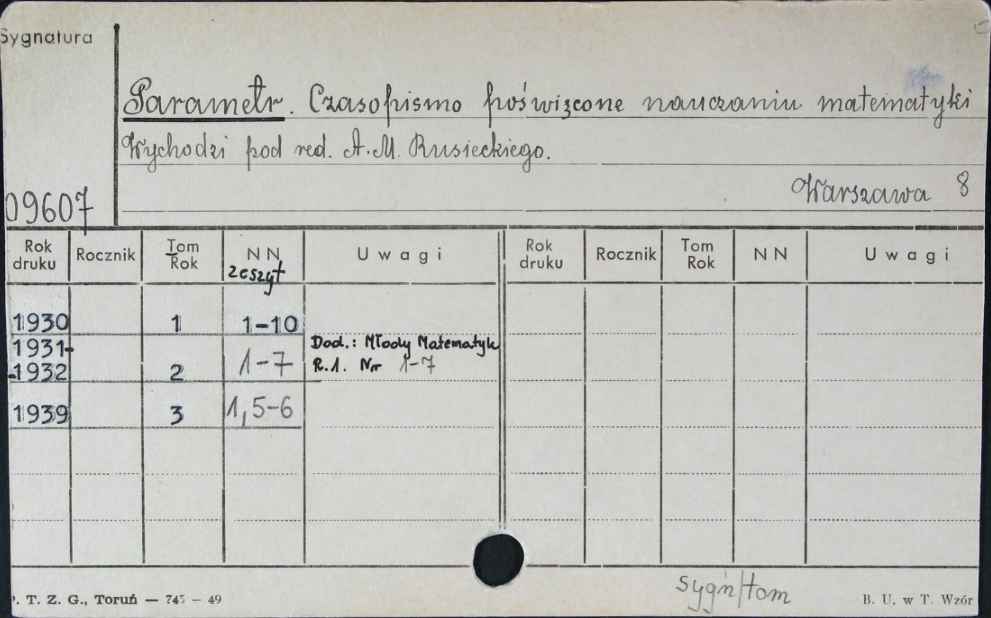 Sygnatura
Parametr. Czasopismo poświęcone nauczaniu matematyki
Wychodzi pod red. A.M. Rusieckiego.
Warszawa 8
09607
Rok druku Rocznik Tom Rok NN zeszyt Uwagi Rok druku Rocznik Tom Rok NN Uwagi
1930 1 1-10
1931- Dod.: Młody Matematyk
-1932 2 1-7 R.1. Nr 1-7
1939 3 1,5-6
sygn/tom
P. T. Z. G., Toruń — 745 - 49 B. U. w T. Wzór